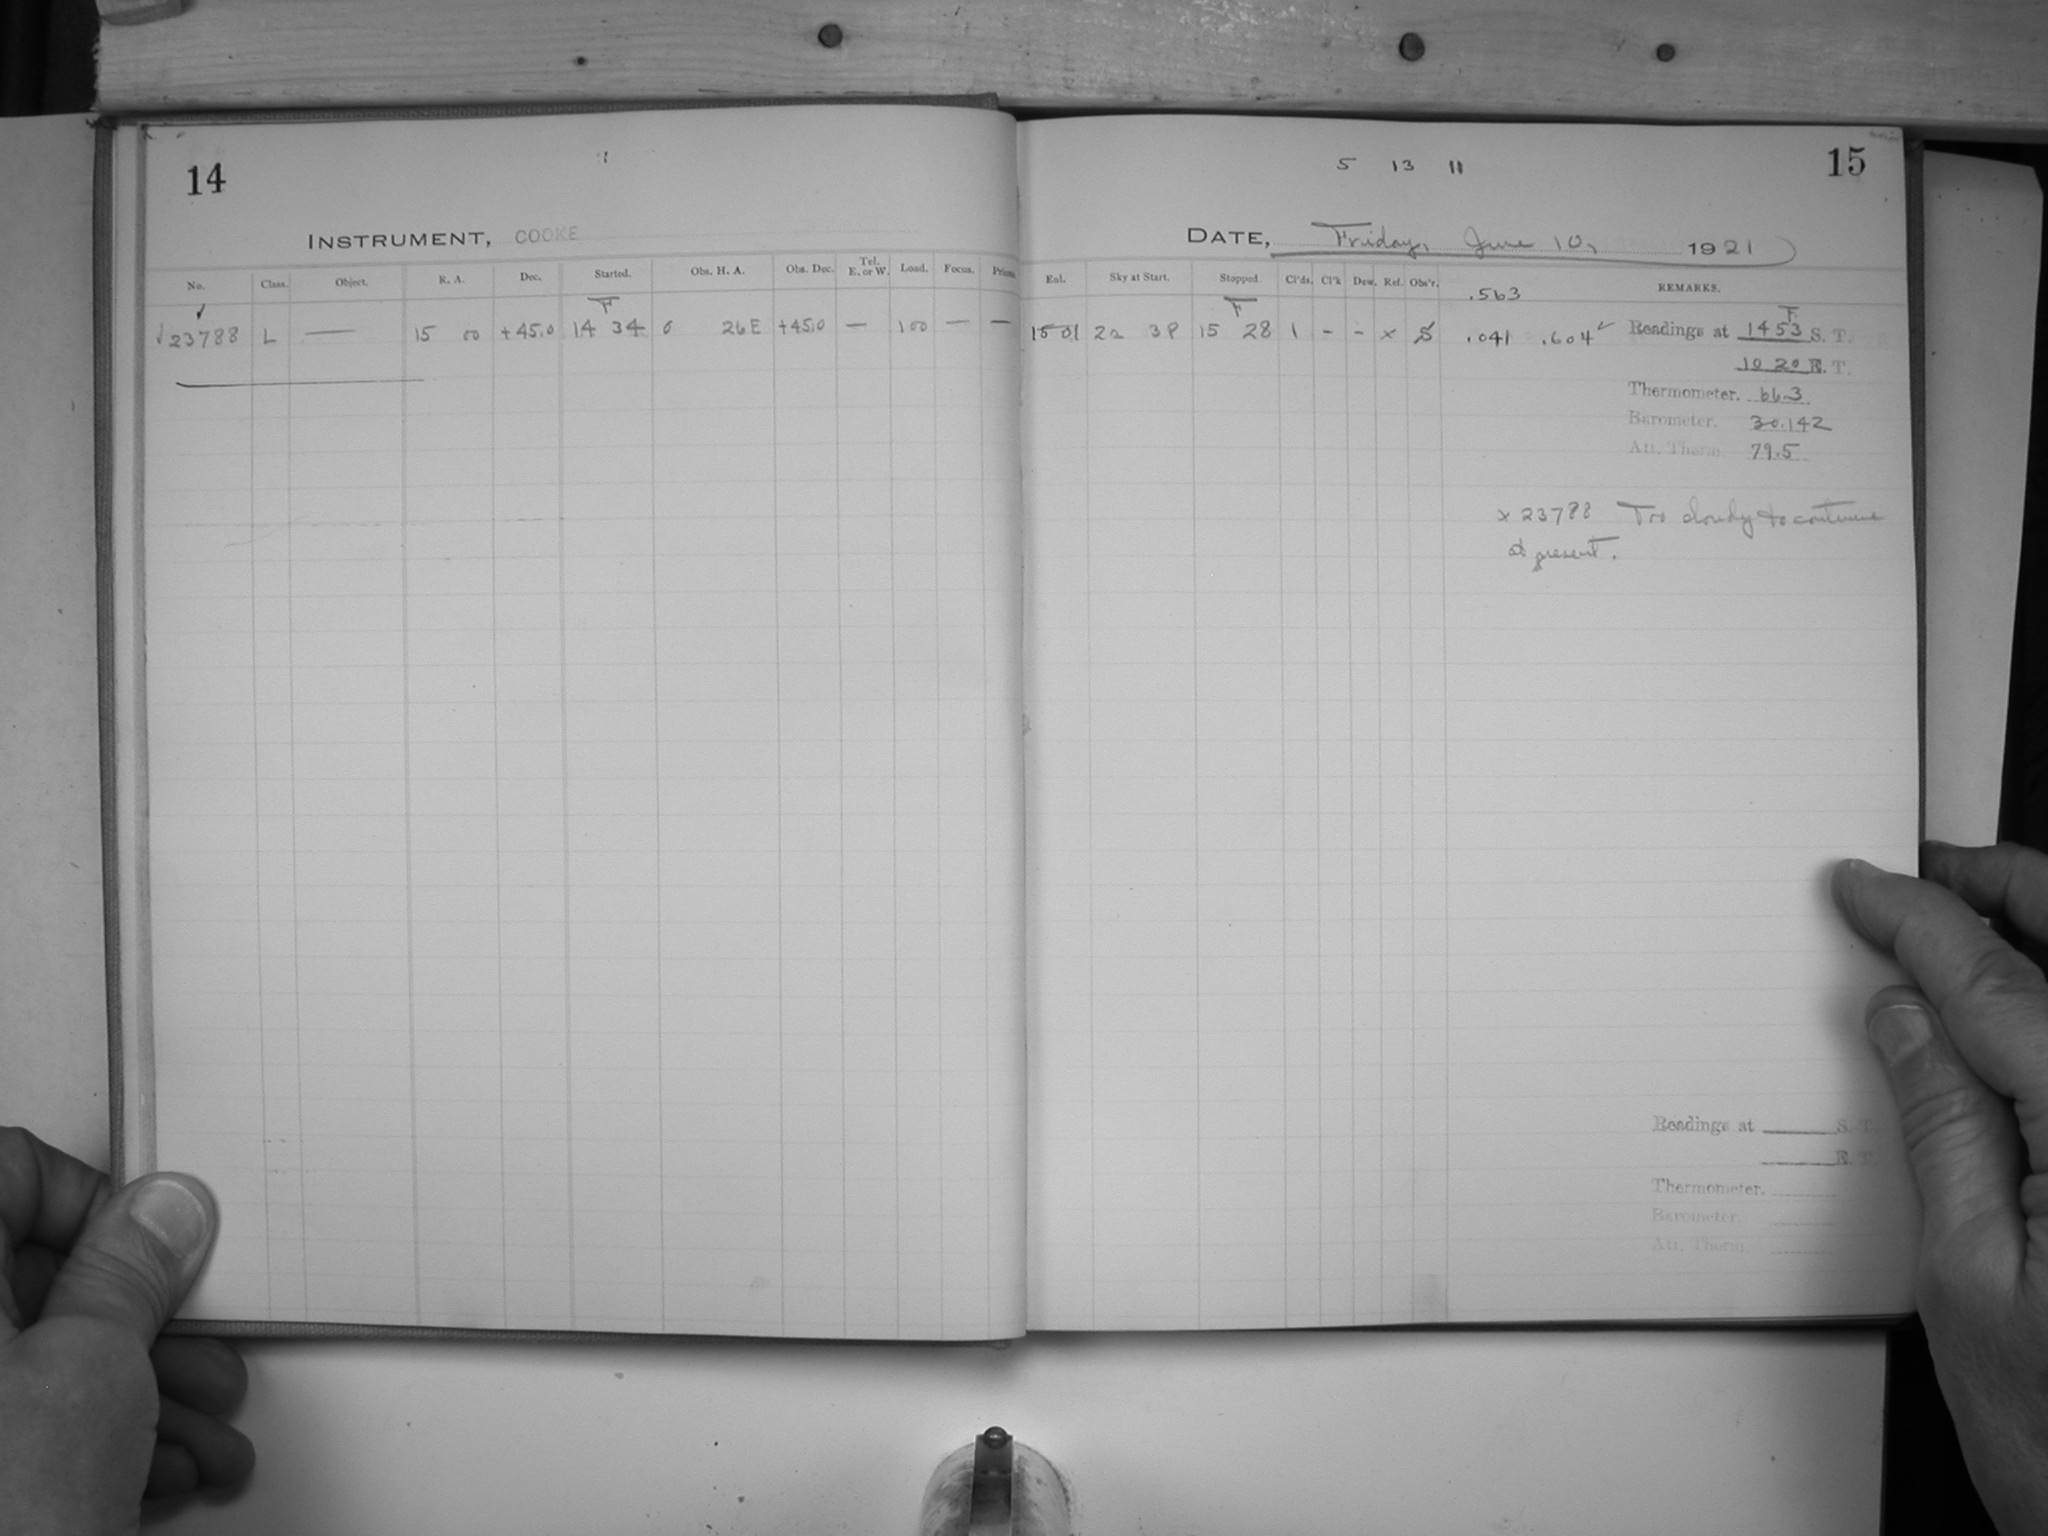 14
INSTRUMENT, COOKE
No. Class. Object. R. A. Dec. Started. Obs. H. A. Obs. Dec. Tel. E. or W. Load. Focus. Prism.
F
23788 L — 15 00 +45.0 14 34 0 26 E +45.0 — 100 — —
5 13 11
15
DATE, Friday, June 10, 1921
Eol. Sky at Start. Stopped. Cl'ds. Cl'k Dew. Ref. Obs'r. REMARKS.
.563
F F.
15 01 2a 3P 15 28 1 - - x S .041 .604 ✓ Readings at 14 53 S. T.
10 20 E. T.
Thermometer. 66.3
Barometer. 30.142
Att. Therm. 79.5
x 23788 Too cloudy to continue
at present.
Readings at S. T.
E. T.
Thermometer.
Barometer.
Att. Therm.